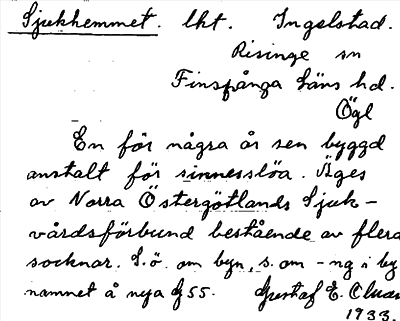 Sjukhemmet. lht. Ingelstad.
Risinge sn
Finspånga läns hd.
Ögl
En för några år sen byggd
anstalt för sinnesslöa. Äges
av Norra Östergötlands Sjuk-
vårdsförbund bestående av flera
socknar. S.ö. om byn, s. om -ng i by
namnet å nya G55. Gustaf E.
1933.